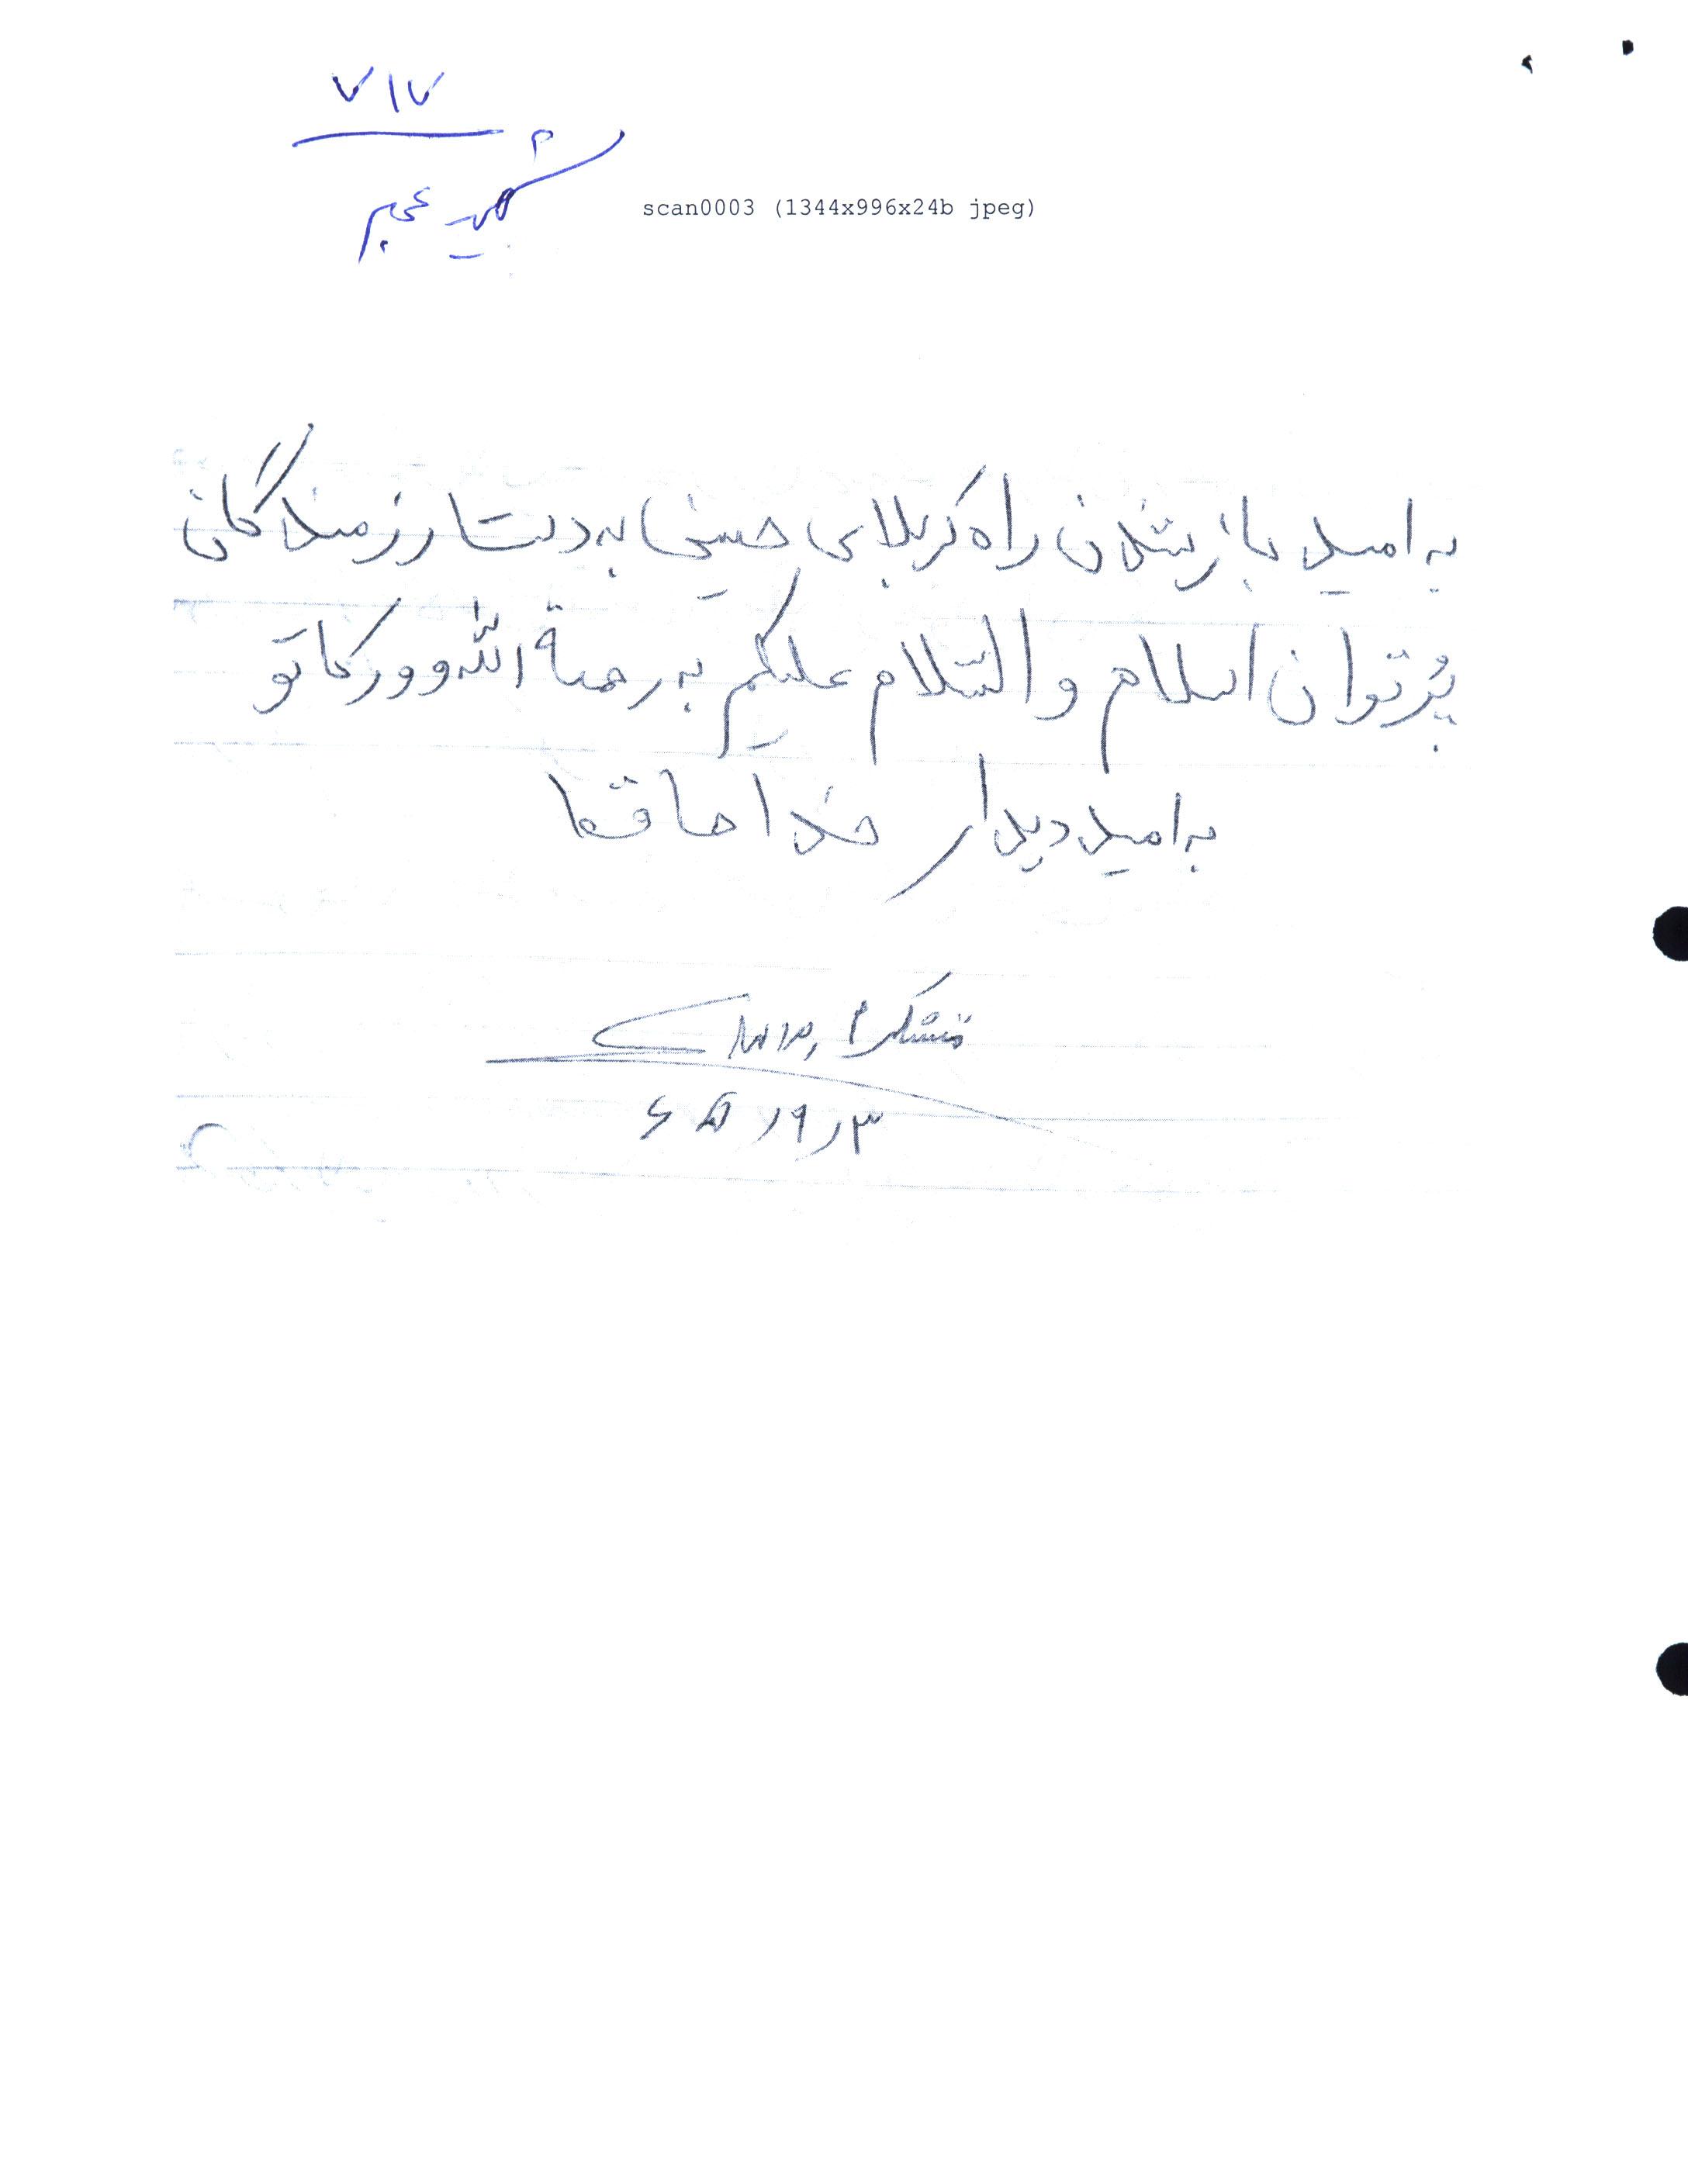 ۷۱۷
scan0003 (1344x996x24b jpeg)
به امید باز شدن راه کربلای حسینی به دست رزمندگان
پرتوان اسلام والسّلام علیکم به رحمة الله وورکاتو
به امید دیدار خداحاقعا
متشکرم
۳ر۹ر۶۵